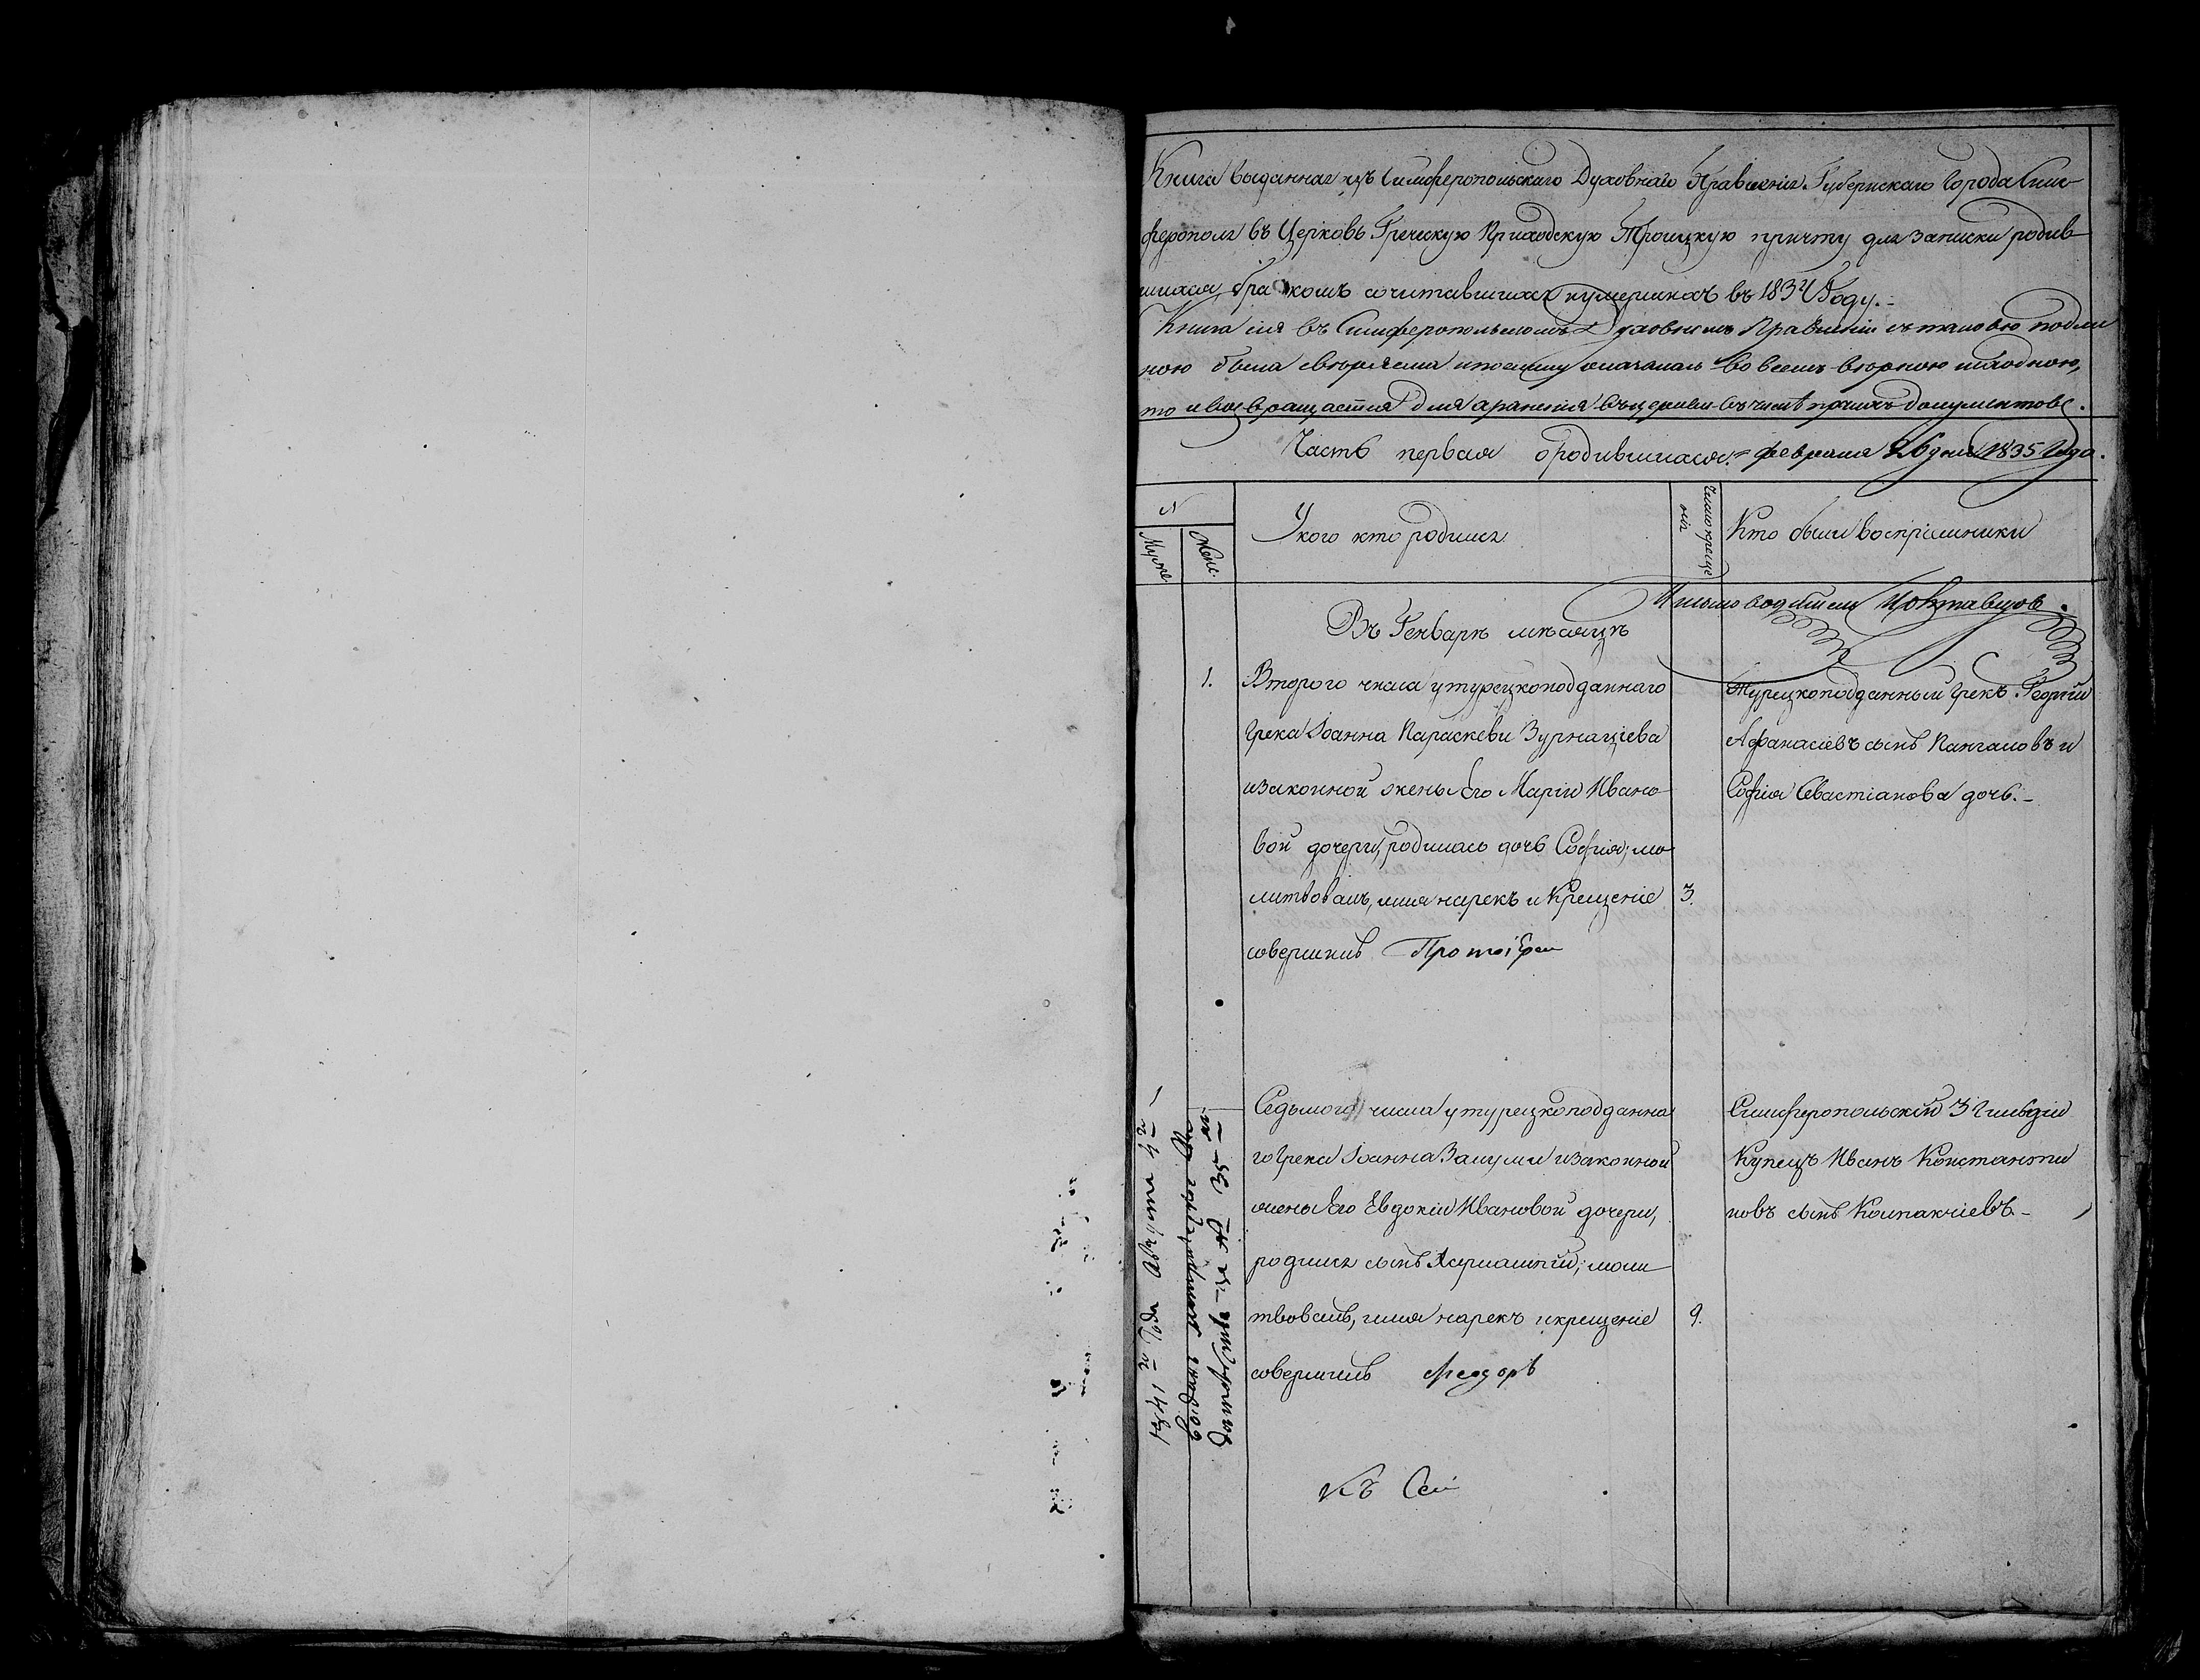 Книга выданная изъ Симферопольскаго Духовнаго Правленія Губернскаго Города Сим-
ферополя въ Церковь Греческую Приходскую Троицкую причту для записки родив-
шихся, бракомъ сочитавшихся и умершихъ въ 1834 Году.-
Книга сія въ Симферопольскомъ Духовномъ Правленіи съ таковою подлин
ною была свѣряема и во всемъ вѣрною и сходною,
то и возвращается для храненія въ церкви въ числѣ прочихъ документовъ.
Часть первая о родившихся.= февраля 26 дня 1835 года.
№
Муже
Женс.
У кого кто родился
Число креще
нія
Кто были воспріемники
Письмоводитель
Въ Генварѣ мѣсяцѣ
1.
Второго числа у турецкоподданнаго
Грека Іоанна Параскеви Зурнаціева
и законной жены Его Маріи Ивано-
вой дочери, родилась дочь Софія; мо-
литвовалъ, имя нарекъ и Крещеніе
совершилъ Протоіерей
3.
Турецкоподданный Грекъ Георгій
Афанасіевъ сынъ Пангаловъ и
Софія Севастіанова дочь.-
1
Седьмого числа у турецкоподданна
го Грека Іоанна и законной
жены Его Евдокіи Ивановой дочери,
родился сынъ моли
твовалъ, имя нарекъ и крещеніе
совершилъ Феодоръ
9.
Симферопольскій 3 Гильдіи
Купецъ Иванъ Константи
новъ сынъ Колпакчіевъ.-
1841 го Года Августа 4 го
Къ Сей